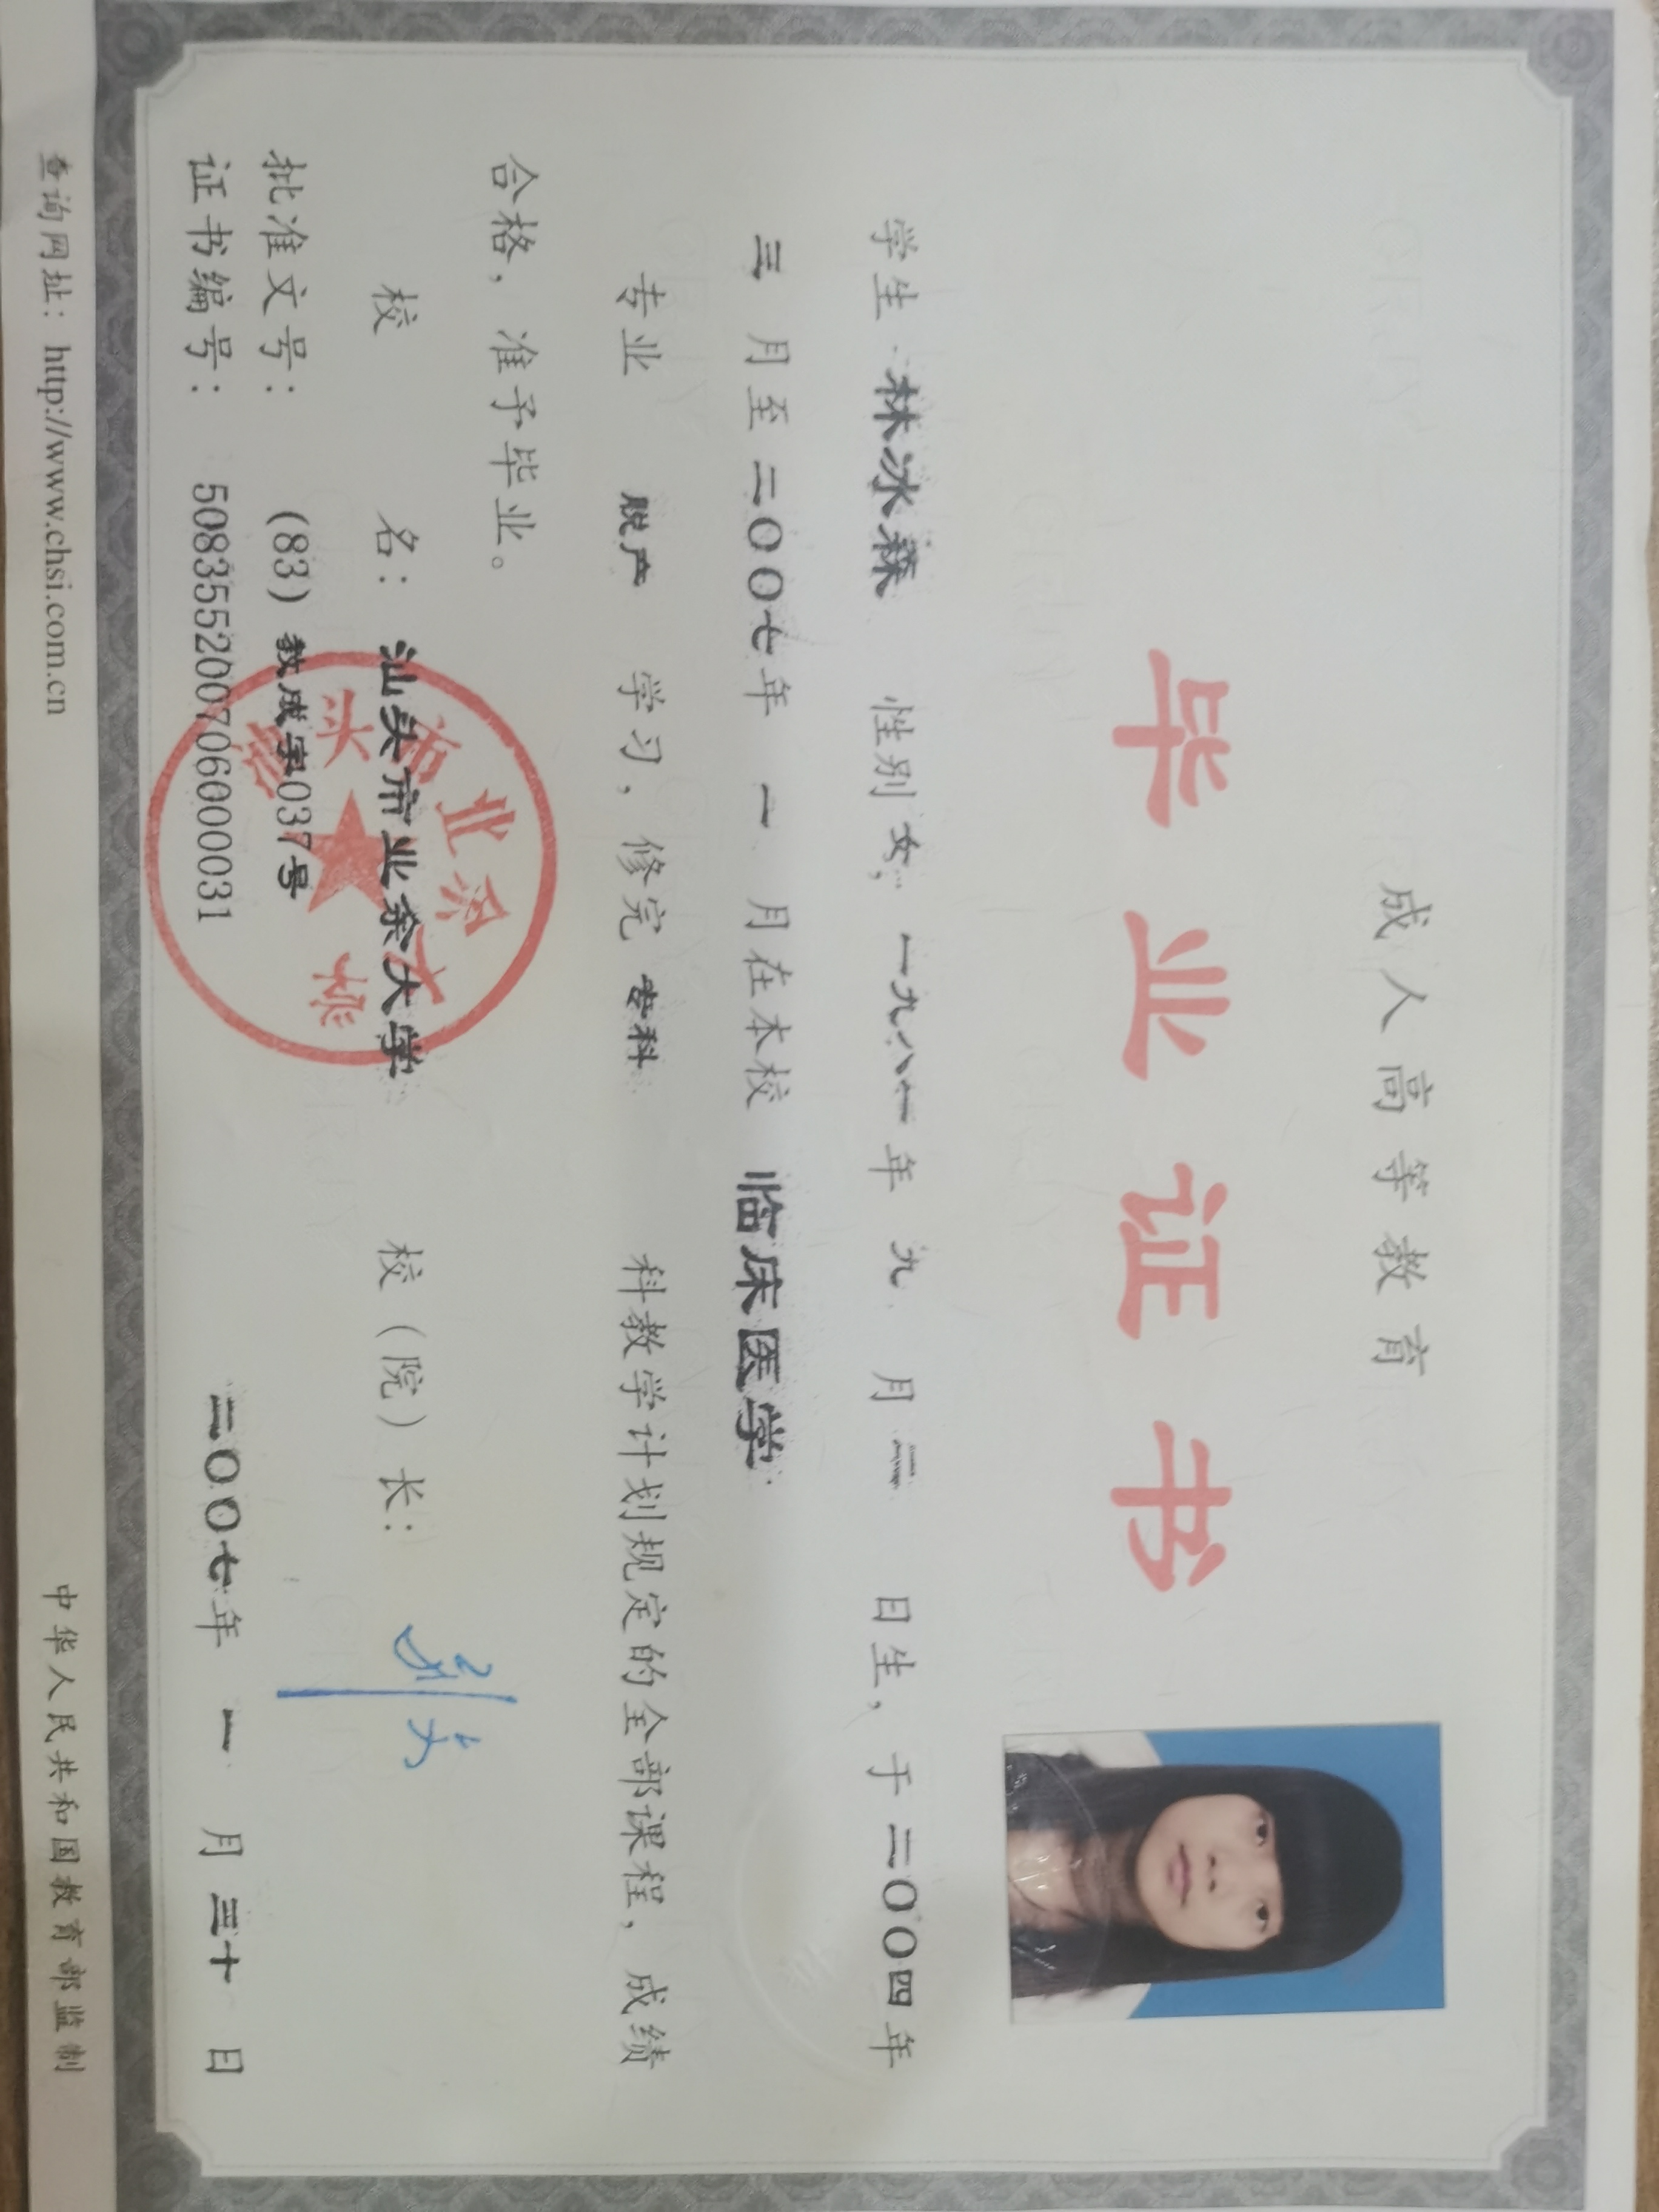 成人高等教育
毕业证书
学生 林冰森 性别 女，一九八一年 九 月 二 日生，于 二〇〇四年
三 月至 二〇〇七年 一 月在本校 临床医学
专业 脱产 学习，修完 专科 科教学计划规定的全部课程，成绩
合格，准予毕业。
校 名：汕头市业余大学 校（院）长：
批准文号：(83)教成字037号
证书编号：508355200706000031 二〇〇七年 一 月 三十 日
查询网址：http://www.chsi.com.cn 中华人民共和国教育部监制